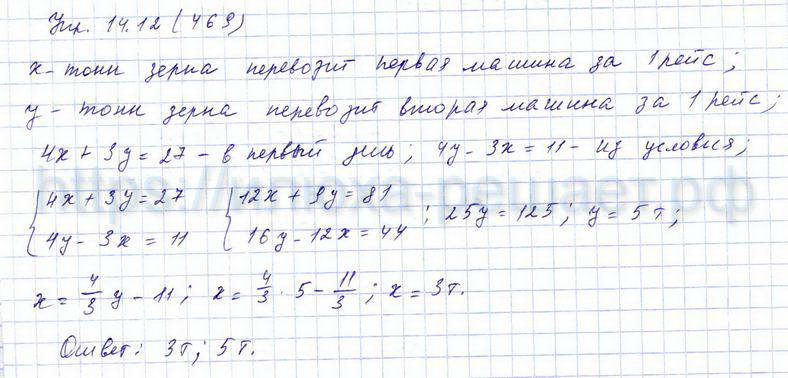 Упр. 14.12 (469)
x - тонн зерна перевозит первая машина за 1 рейс;
y - тонн зерна перевозит вторая машина за 1 рейс;
4x + 3y = 27 - в первый день; 4y - 3x = 11 - из условия;
{4x + 3y = 27 {12x + 9y = 81
{4y - 3x = 11 {16y - 12x = 44 ; 25y = 125; y = 5 т;
x = 4/3 y - 11; x = 4/3 · 5 - 11/3; x = 3 т.
Ответ: 3 т; 5 т.